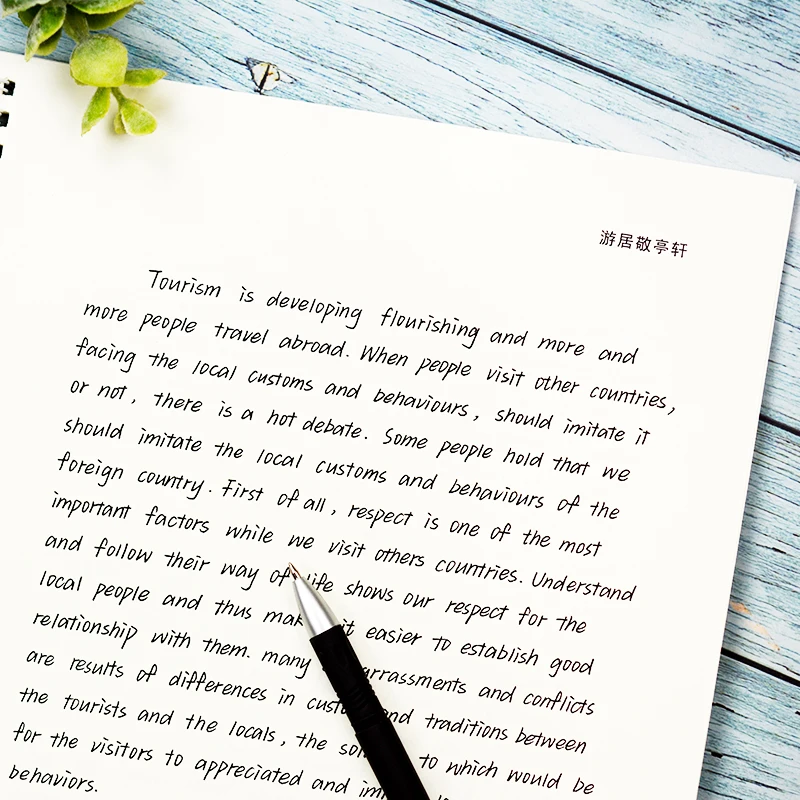 游居敬亭轩
Tourism is developing flourishing and more and
more people travel abroad. When people visit other countries,
facing the local customs and behaviours, should imitate it
or not, there is a hot debate. Some people hold that we
should imitate the local customs and behaviours of the
foreign country. First of all, respect is one of the most
important factors while we visit others countries. Understand
and follow their way of life shows our respect for the
local people and thus it easier to establish good
relationship with them. many and conflicts
are results of differences in and traditions between
the tourists and the locals, the to which would be
for the visitors to appreciated and
behaviors.